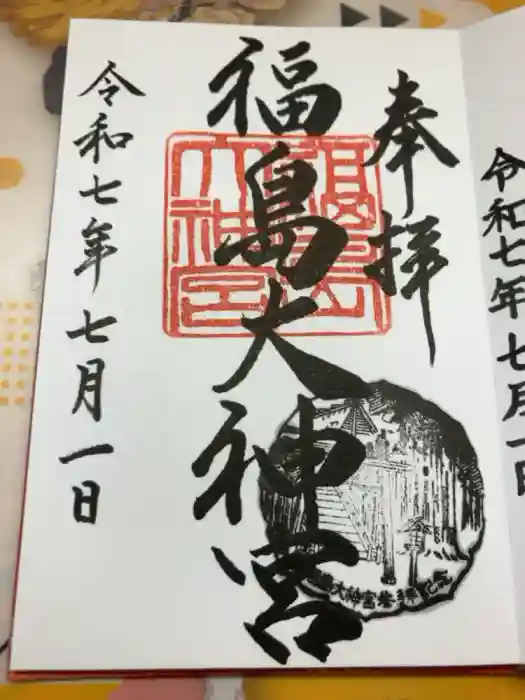 奉拝
福島大神宮
令和七年七月一日
福島大神宮
大神宮参拝
令和七年七月一日